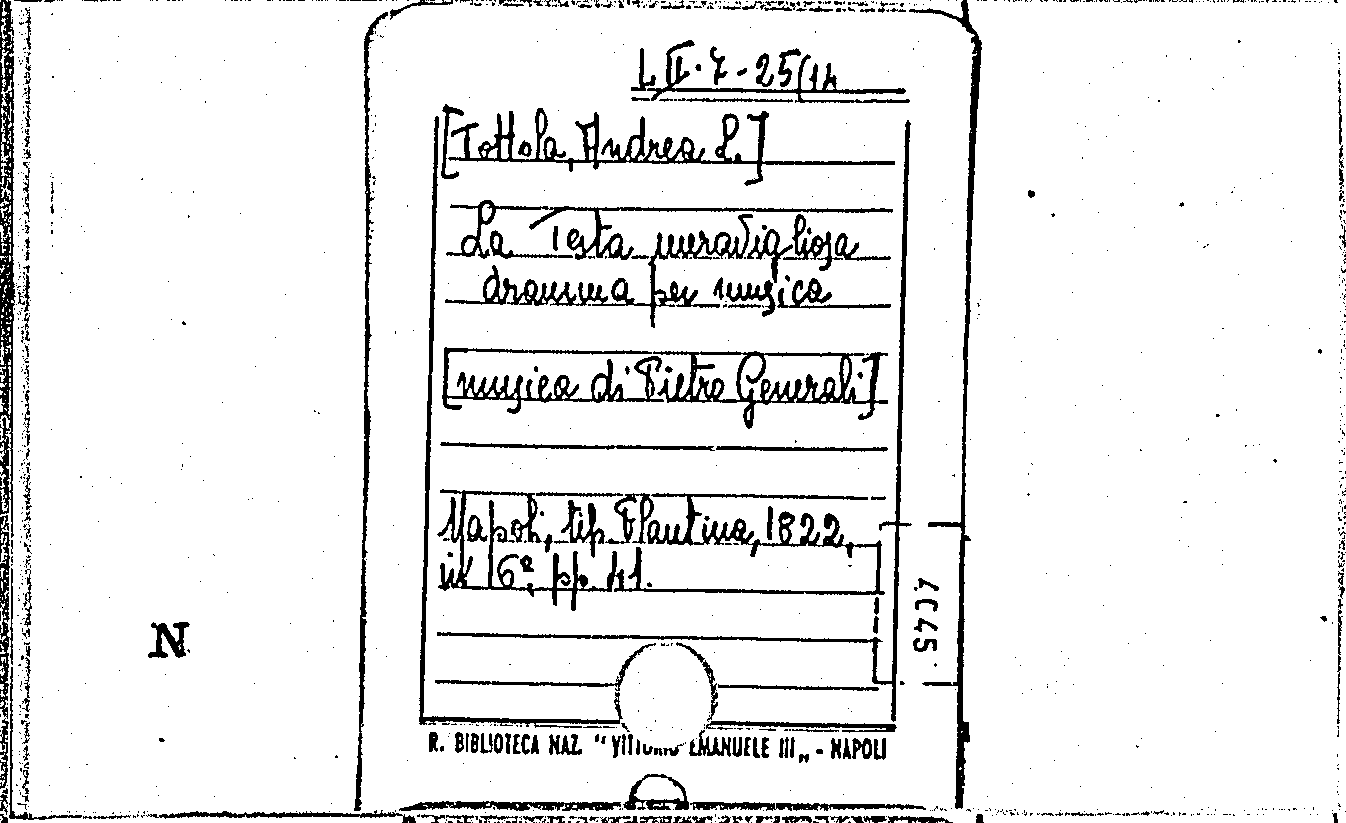 L.II.7-25(14
[Tottola, Andrea L.]
La Testa meravigliosa
dramma per musica
[musica di Pietro Generali]
Napoli, tip. Plautina, 1822,
in 16º, pp. 41.
4045
N
R. BIBLIOTECA NAZ. "VITTORIO EMANUELE III„ - NAPOLI